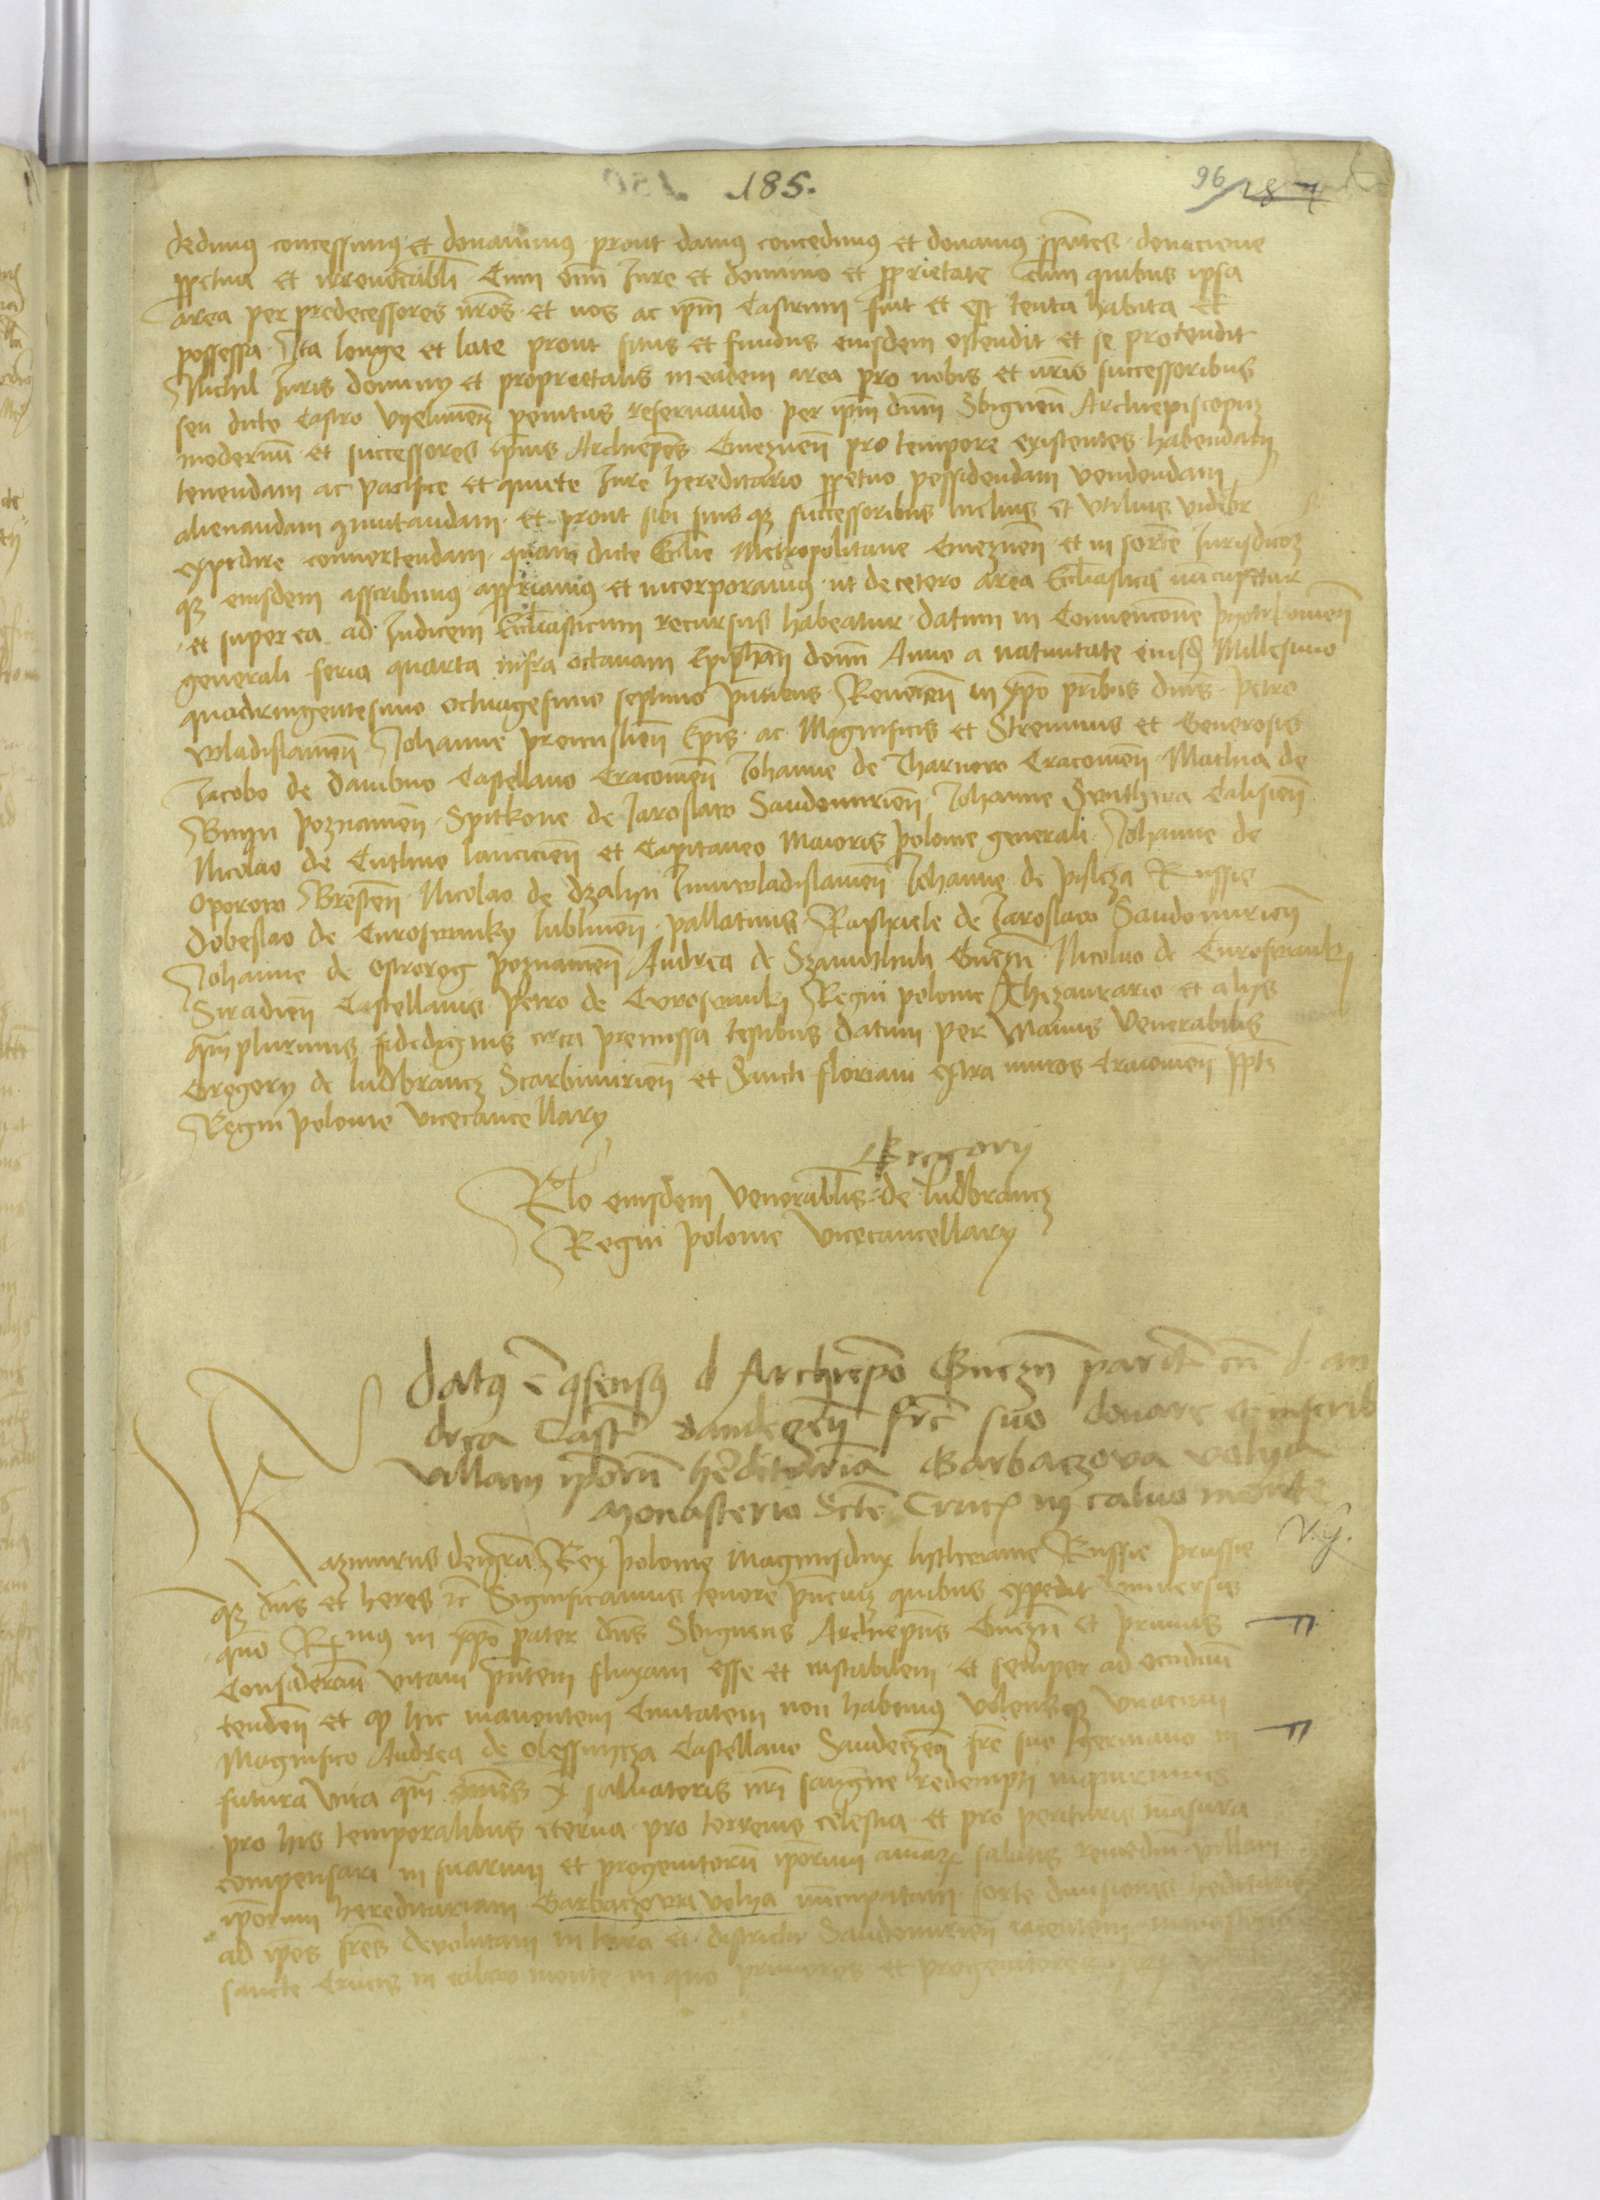 185.
96
dedimus concessimus et donavimus prout damus concedimus et donamus pntes donacione
ppetua et irrevocabli Cum omi Jure et dominio et pprietate Cum quibus ipsa
area per predecessores nros et nos ac ipm Castrum fuit et est tenta habita et
possessa Ita longe et late prout situs et fundus eiusdem ostendit et se protendit
Nichil Juris dominy et proprietatis in eadem area pro nobis et nris successoribus
seu dicto Castro penitus reservando per ipm dnm Sbigneu Archiepiscopu
modernu et successores ipsius Archiepos Gneznen pro tempore existentes habendam
tenendam ac pacifice et quiete Jure hereditario ppetuo possidendam vendendam
alienandam gmutandam et prout sibi suisqz successoribus melius et utilius videbr
expedire convertendam quam dicte Eclie Metropolitane Gneznen et in sorte
qz eiusdem asscribimus apppriamus et incorporamus ut de cetero area Ecliastica nuncupetur
et super ea ad Judicem Ecliasticum recursus habeatur datum in Convencione Pyotrkovien
generali feria quarta infra octavam Epiphan domi Anno a nativitate eiusd Millesimo
quadringentesimo octuagesimo septimo pntibus Reveren in xpo pribus dnis Petro
wladislavien Johanne premislien Epis ac Magnificis et Strennuis et Generosis
Jacobo de dambno Castellano Cracovien Johanne de Tharnow Cracovien Mathia de
Bnyn Poznanien Spitkone de Jaroslaw Sandomirien Johanne Calisien
Nicolao de Cuthno lancicien et Capitaneo Maioris Polonie generali Johanne de
Oporow Bresten Nicolao de dzalyn Juniwladislavien Johanne de pilcza Russie
dobeslao de Curoswanky lublinen pallatinis Raphaele de Jaroslaw Sandomirien
Johanne de Ostrorog Poznanien Andrea de Szamothuli Gnezn Nicolao de Curoswanki
Siradien Castellanis Petro de Curoswanki Regni polonie Thezaurario et alys
qm plurimis fidedignis circa premissa testibus datum per Manus Venerabilis
Gregory de ludbrancz Scarbimirien et Sancti floriani extra muros Cracovien ppti
Regni polonie vicecancellary
Gregorij
Rlo eiusdem Venerablis de ludbrancz
Regni polonie vicecancellary
datus e gsensus d Archiepo Gnezn parit cu d an
drea Caste Sandeczen fre suo donare et inscrib
villam iporu hereditaria Garbaczova volya
monasterio Scte Cruc in calvo monte
Kazimirus dei gra Rex Polonie Magnusdux lithwanie Russie prussie
qz dns et heres rc Significamus tenore pncium quibus expedit universis
quo Rmus in xpo pater dns Sbigneus Archiepus Gnezn et primas
Consideran vitam pntem fluxam esse et instabilem et semper ad occidum
tenden et q hic manentem Civitatem non habemus volens unacum
Magnifico Andrea de Olessnicza Castellano Sandeczen fre suo germano in
futura vita salvatoris nri sangne redempti
pro his temporalibus eterna pro terrenis celestia et pro perituris mansura
compensari in suarum et progenitoru iporum animarz salutis remediu villam
iporum hereditariam Garbaczowa volya nuncupatam sorte divisionis
ad ipos fres devolutam in terra et districtu Sandomirien iacentem monasterio
sancte Crucis in calvo monte in quo priores et progenitores